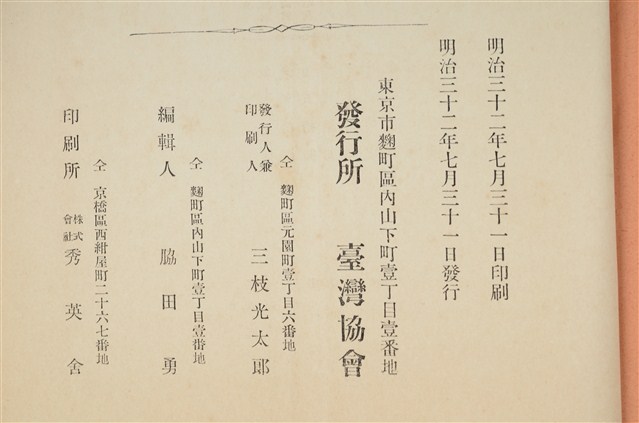 明治三十二年七月三十一日印刷
明治三十二年七月三十一日發行
東京市麴町區內山下町壹丁目壹番地
發行所 臺灣協會
仝 麴町區元園町壹丁目六番地
發行人兼印刷人 三枝光太郎
仝 麴町區內山下町壹丁目壹番地
編輯人 脇田勇
仝 京橋區西紺屋町二十六七番地
印刷所 株式會社 秀英舍